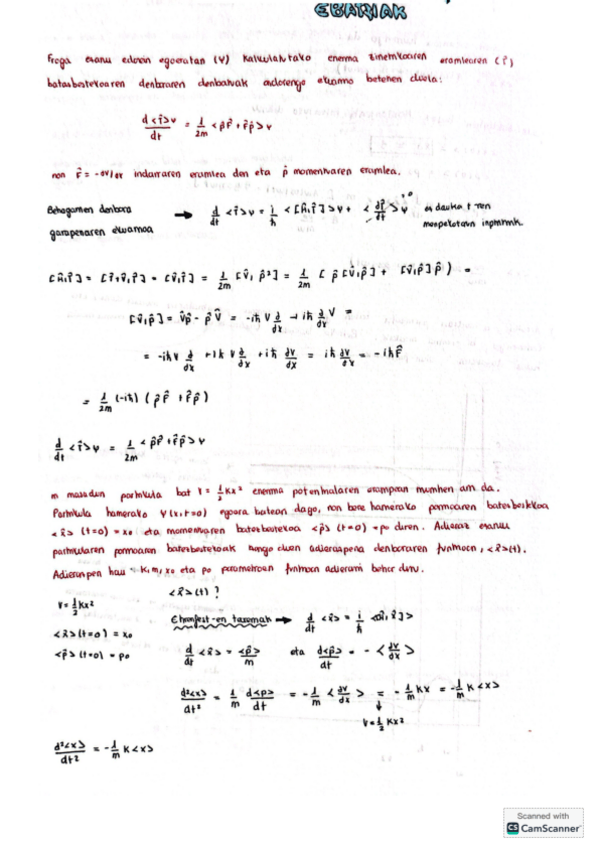 EBATZIAK
Froga ezazu edozein egoeratan (ψ) kalkulatutako energia zinetikoaren eramlearen (T̂)
batezbestekoaren denboraren deribatuak ondorengo ekuazioa betetzen duela:
d<T̂>ψ/dt = 1/2m <p̂F̂ + F̂p̂>ψ
non F̂ = -∂V/∂x indarraren eramlea den eta p̂ momentuaren eramlea.
Behagarrien denbora → d/dt <T̂>ψ = i/ħ <[Ĥ,T̂]>ψ + <∂T̂/∂t>ψ ez dauka t-ren
garapenaren ekuazioa menpekotasun inplizitorik.
[Ĥ,T̂] = [T̂+V̂,T̂] = [V̂,T̂] = 1/2m [V̂,p̂²] = 1/2m [p̂[V̂,p̂] + [V̂,p̂]p̂) =
[V̂,p̂] = V̂p̂ - p̂V̂ = -iħV ∂/∂x + iħ ∂/∂x V =
= -iħV ∂/∂x + iħV ∂/∂x + iħ ∂V/∂x = iħ ∂V/∂x = -iħF̂
= 1/2m (-iħ) (p̂F̂ + F̂p̂)
d/dt <T̂>ψ = 1/2m <p̂F̂ + F̂p̂>ψ
m masadun partikula bat V = 1/2 Kx² energia potentzialaren eraginpean mugitzen ari da.
Partikula hamerako ψ(x,t=0) egoera batean dago, non bere hamerako posizioaren batezbestekoa
<x̂>(t=0) = x₀ eta momentuaren batezbestekoa <p̂>(t=0) = p₀ diren. Adieraz ezazu
partikularen posizioaren batezbestekoak izango duen adierazpena denboraren funtzioan, <x̂>(t).
Adierazpen hau K, m, x₀ eta p₀ parametroen funtzioan adierazi behar duzu.
<x̂>(t)?
V = 1/2 Kx²
Ehrenfest-en teoremak → d/dt <x̂> = i/ħ <[Ĥ,x̂]>
<x̂>(t=0) = x₀
<p̂>(t=0) = p₀ d/dt <x̂> = <p̂>/m eta d<p̂>/dt = - <∂V/∂x>
d²<x>/dt² = 1/m d<p>/dt = - 1/m <∂V/∂x> = - 1/m Kx = - 1/m K<x>
V = 1/2 Kx²
d²<x>/dt² = - 1/m K<x>
Scanned with
CS CamScanner